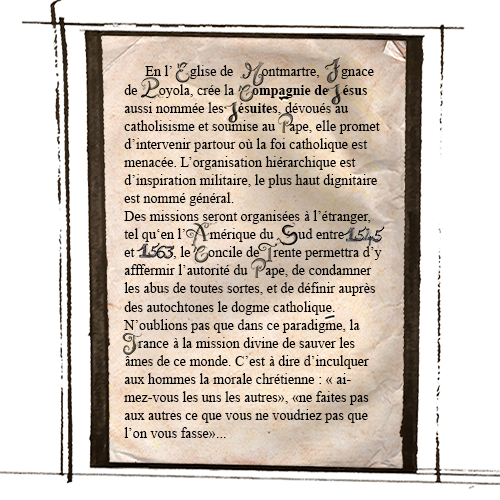 En l' Eglise de Montmartre, Ignace
de Loyola, crée la Compagnie de Jésus
aussi nommée les Jésuites, dévoués au
catholisisme et soumise au Pape, elle promet
d'intervenir partour où la foi catholique est
menacée. L'organisation hiérarchique est
d'inspiration militaire, le plus haut dignitaire
est nommé général.
Des missions seront organisées à l'étranger,
tel qu'en l'Amérique du Sud entre 1545
et 1563, le Concile de Trente permettra d'y
afffermir l'autorité du Pape, de condamner
les abus de toutes sortes, et de définir auprès
des autochtones le dogme catholique.
N'oublions pas que dans ce paradigme, la
France à la mission divine de sauver les
âmes de ce monde. C'est à dire d'inculquer
aux hommes la morale chrétienne : « ai-
mez-vous les uns les autres», «ne faites pas
aux autres ce que vous ne voudriez pas que
l'on vous fasse»...